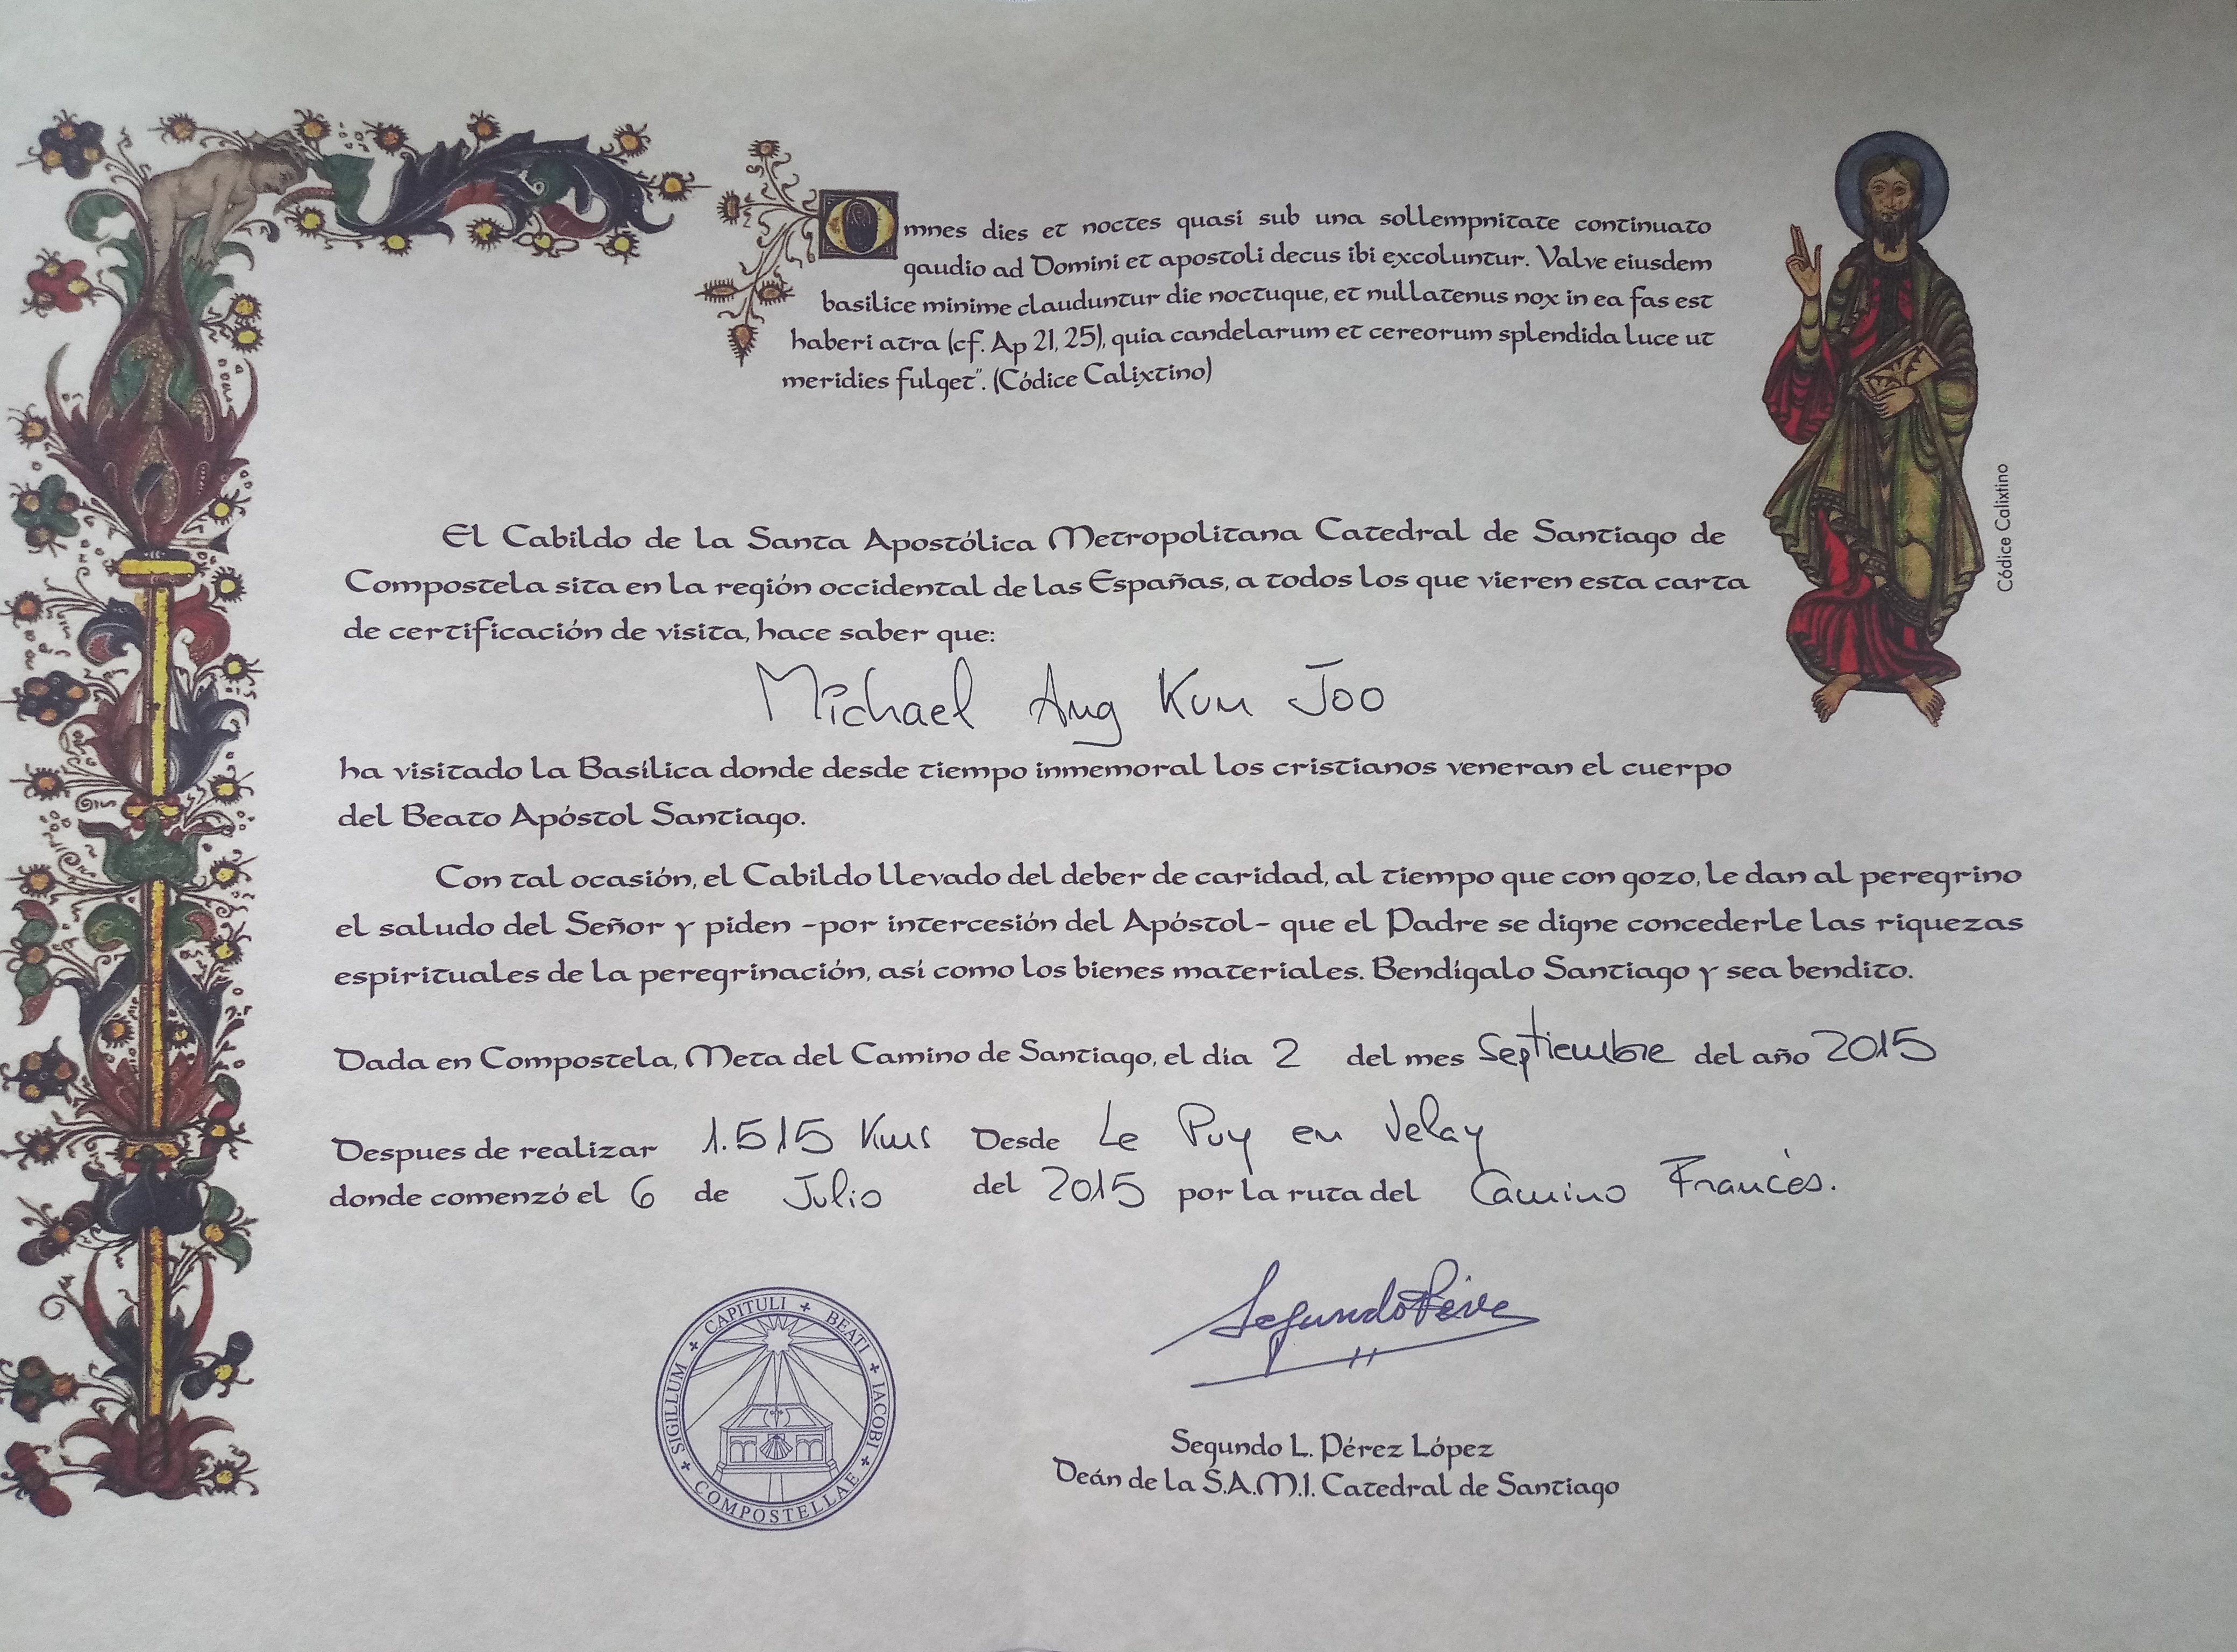 Omnes dies et noctes quasi sub una sollempnitate continuato
gaudio ad Domini et apostoli decus ibi excoluntur. Valve eiusdem
basilice minime clauduntur die noctuque, et nullatenus nox in ea fas est
haberi atra (cf. Ap 21, 25), quia candelarum et cereorum splendida luce ut
meridies fulget". (Códice Calixtino)
Códice Calixtino
El Cabildo de la Santa Apostólica Metropolitana Catedral de Santiago de
Compostela sita en la región occidental de las Españas, a todos los que vieren esta carta
de certificación de visita, hace saber que:
Michael Ang Kum Joo
ha visitado la Basílica donde desde tiempo inmemoral los cristianos veneran el cuerpo
del Beato Apóstol Santiago.
Con tal ocasión, el Cabildo llevado del deber de caridad, al tiempo que con gozo, le dan al peregrino
el saludo del Señor y piden -por intercesión del Apóstol- que el Padre se digne concederle las riquezas
espirituales de la peregrinación, así como los bienes materiales. Bendígalo Santiago y sea bendito.
Dada en Compostela, Meta del Camino de Santiago, el dia 2 del mes Septiembre del año 2015
Despues de realizar 1.515 Kms Desde Le Puy en Velay
donde comenzó el 6 de Julio del 2015 por la ruta del Camino Francés.
SIGILLUM + CAPITULI + BEATI + IACOBI + COMPOSTELLAE +
Segundo Pérez
Segundo L. Pérez López
Deán de la S.A.M.I. Catedral de Santiago